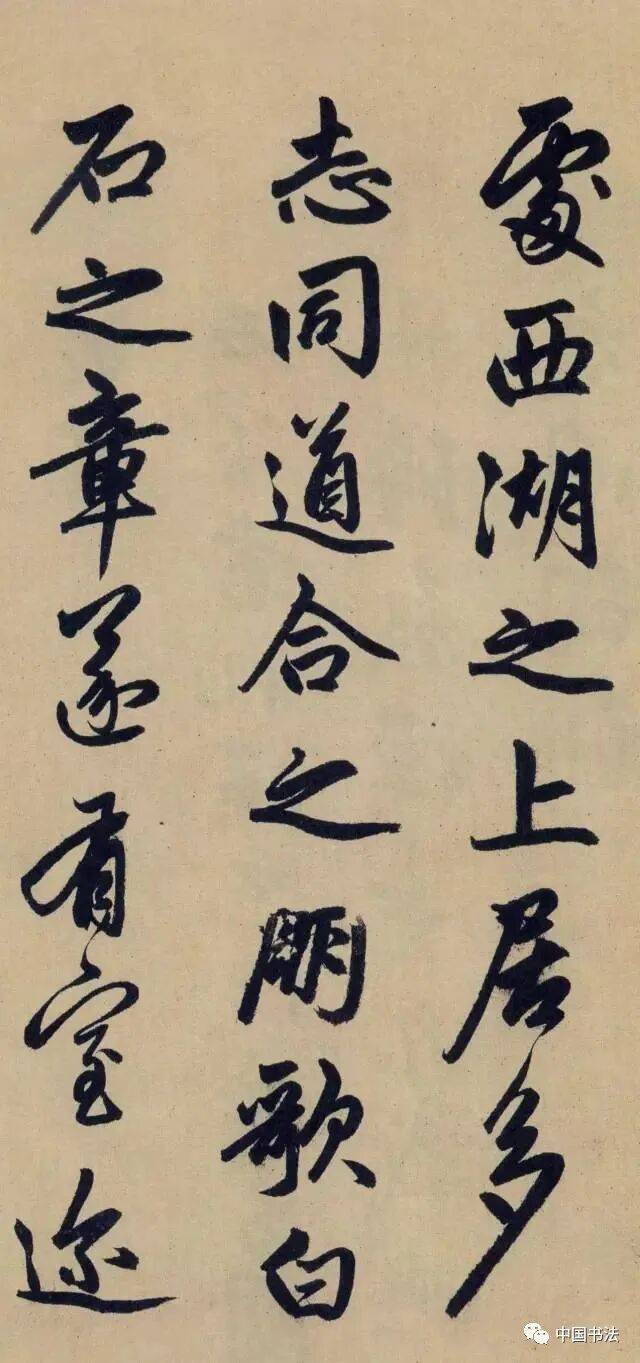 處西湖之上居多
志同道合之朋歌白
石之章遂有室迩
中国书法